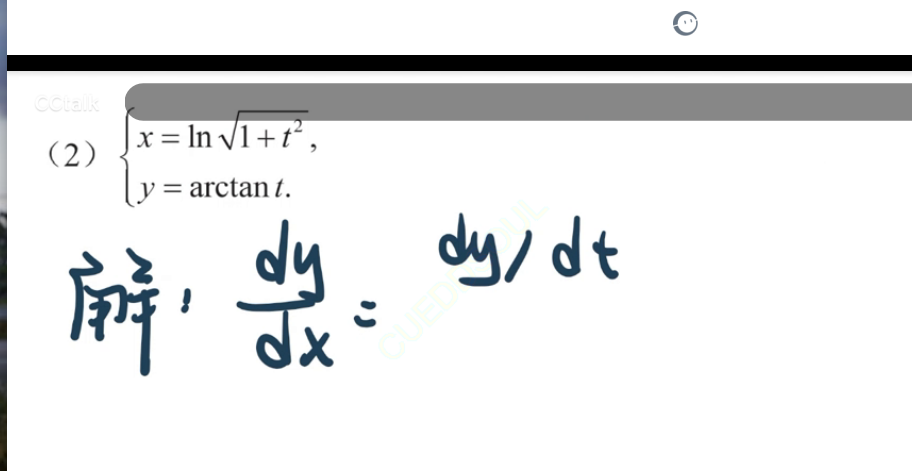 CCtalk
(2) { x = ln √(1 + t²) ,
y = arctan t.
解: dy/dx = dy/dt